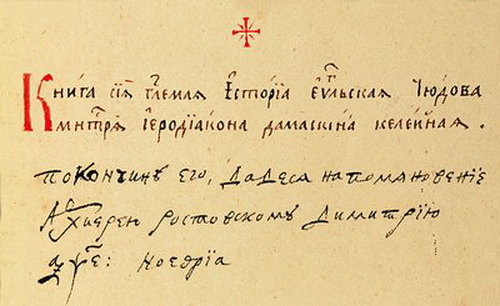 Книга сїѧ гл҃емаѧ Єсторїа Єѵⷢ҇льскаѧ Чюдова
мн҃трѧ їеродїакона дамаскина келейнаѧ .
по кончинѣ его, дадеся на поминовенїе
Архїерею ростовскомъ Димитрїю
҂аѱе҃: ноеврїа